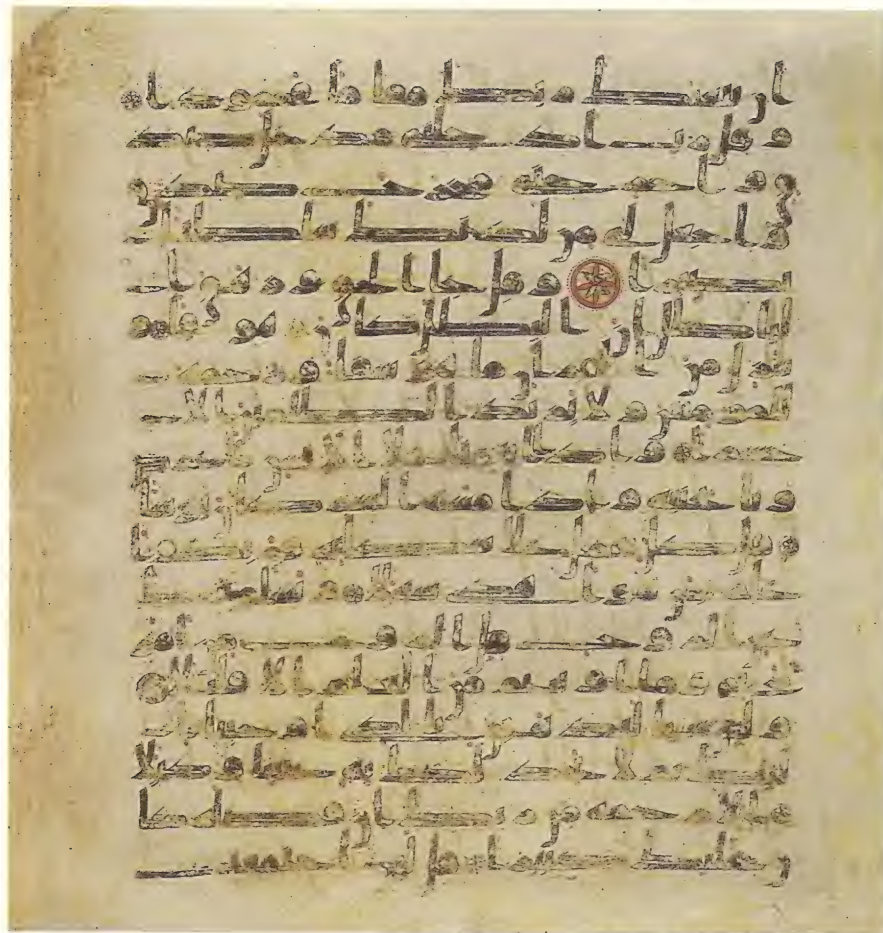 ان يبعثك ربك مقاما محمودا
وقل رب ادخلني مدخل صد
ق واخرجني مخرج صدق و
اجعل لي من لدنك سلطنا
نصيرا وقل جا الحق وزهق
البطل ان البطل كان زهوقا و
ننزل من القران ما هو شفا ورحمة
للمومنين ولا يزيد الظلمين الا
خسارا واذا انعمنا على الانسن اعرض
ونا بجنبه واذا مسه الشر كان يوسا
قل كل يعمل على شاكلته فربكم ا
علم بمن هو اهدى سبيلا ويسلونك
عن الروح قل الروح من امر
ربي وما اوتيتم من العلم الا قليلا
ولئن شئنا لنذهبن بالذي اوحينا
اليك ثم لا تجد لك به علينا وكيلا
الا رحمة من ربك ان فضله كا
ن عليك كبيرا قل لئن اجتمعت